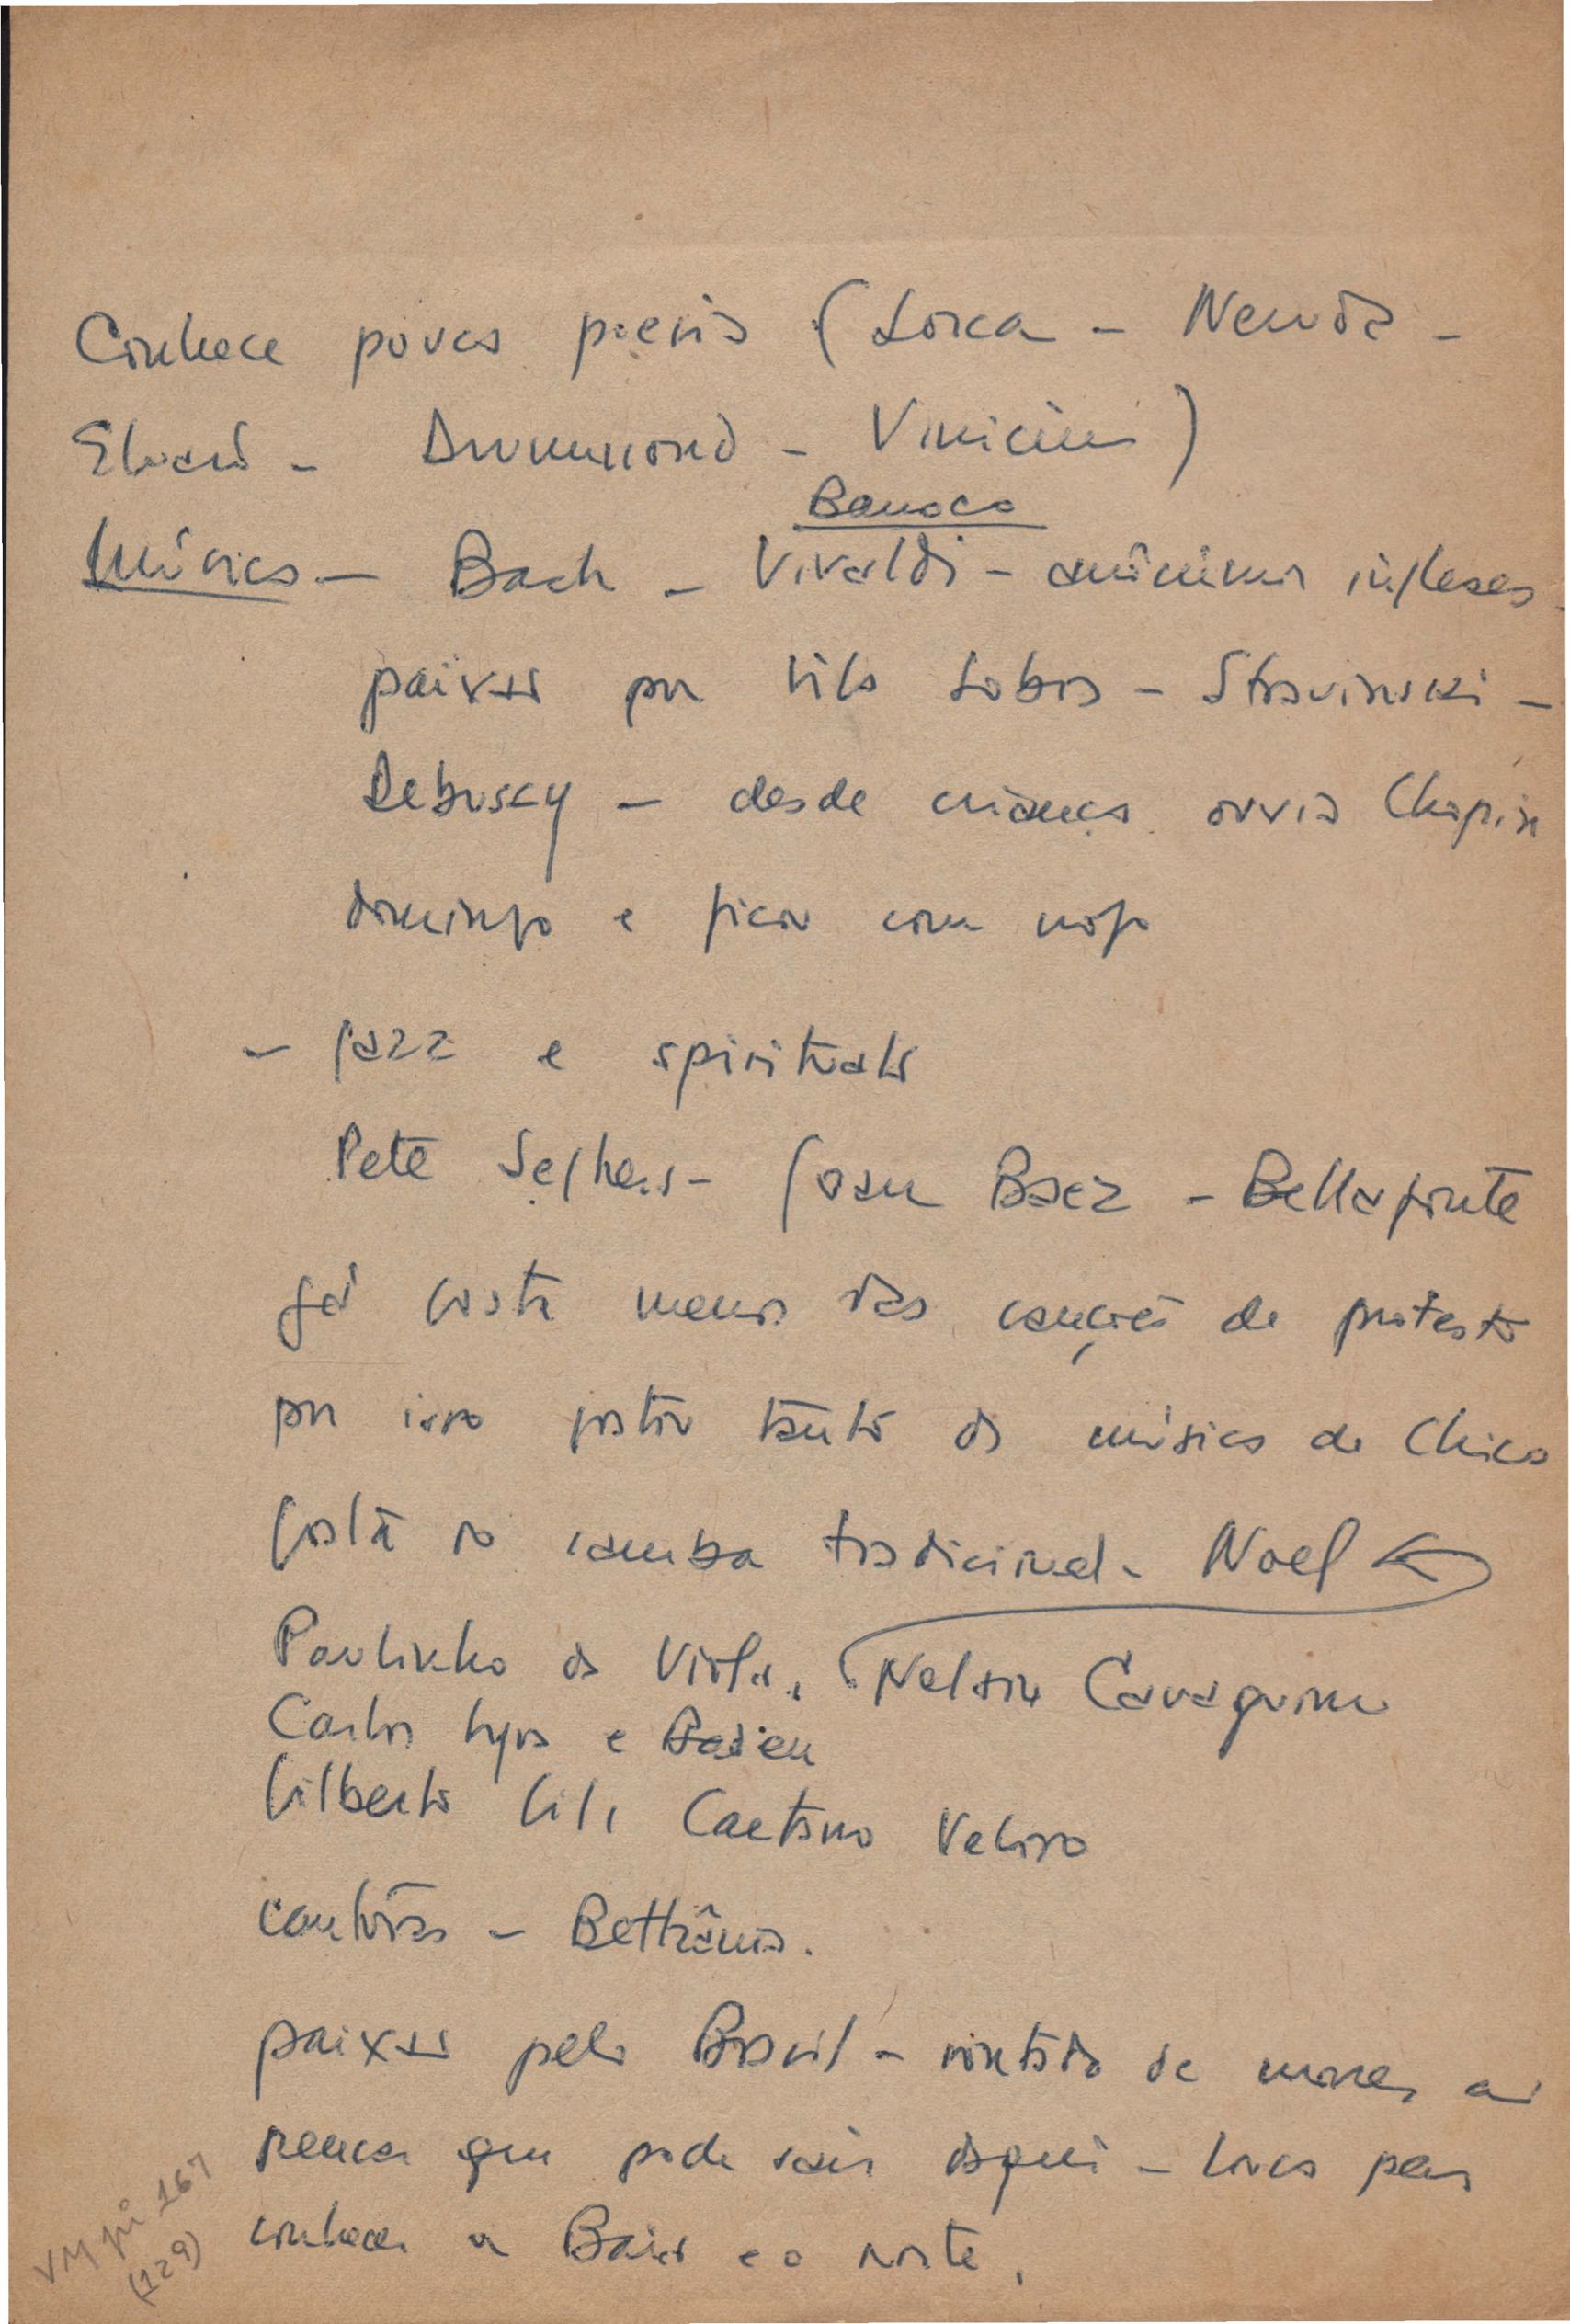 Conhece pouca poesia (Lorca - Neruda -
Eluard - Drummond - Vinicius)
Barroco
Música - Bach - Vivaldi - anônimos ingleses -
paixão por Vila Lobos - Stravinski -
Debussy - desde criança ouvia Chopin
domingo e ficou com nojo
- jazz e spirituals
Pete Seghers - Joan Baez - Bellafonte
já gosta menos das canções de protesto
por isso gostou tanto da música de Chico
gosta do samba tradicional - Noel
Paulinho da Viola, Nelson Cavaquinho
Carlos Lyra e Baden
Gilberto Gil, Caetano Veloso
cantoras - Bethânia.
paixão pelo Brasil - vontade de morrer ao
pensar que pode sair daqui - louca para
conhecer a Baia e o norte.
VM pi 167
(129)